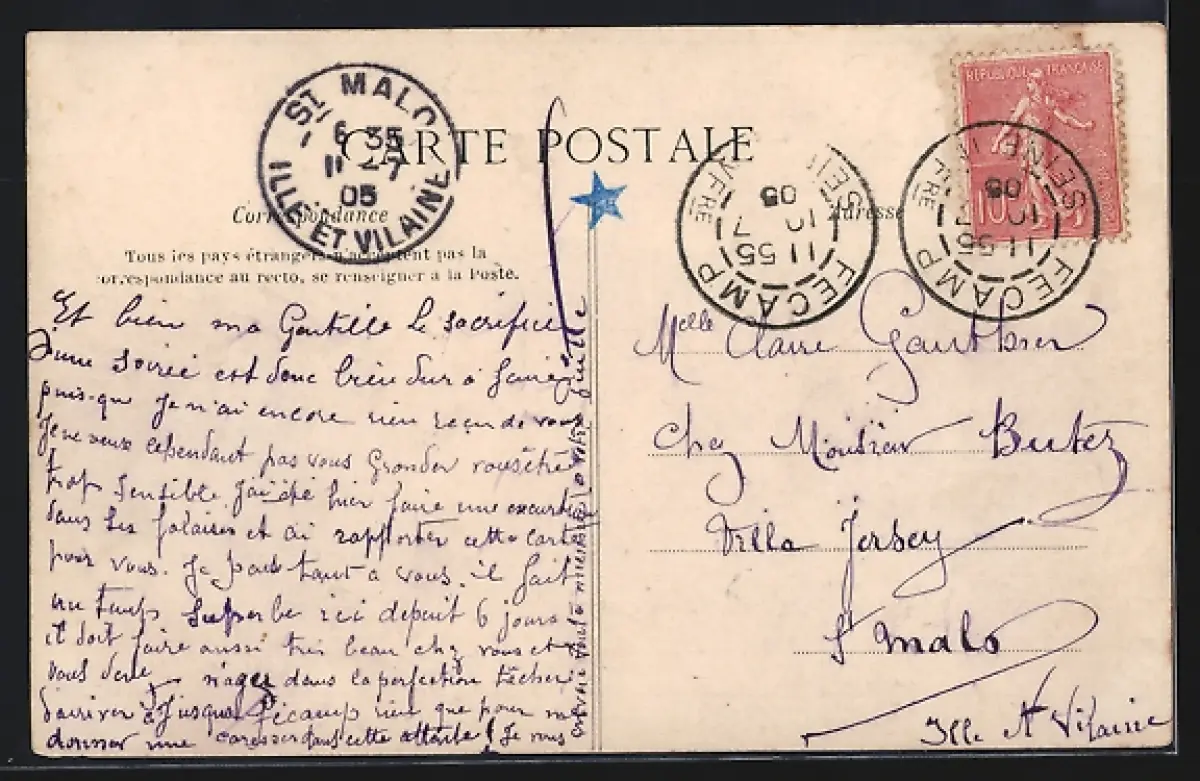 CARTE POSTALE
Correspondance
Adresse
Tous les pays étrangers n'acceptent pas la
correspondance au recto, se renseigner à la Poste.
ST MALO
6 35
11 -7
05
ILLE-ET-VILAINE
FECAMP
11 55
10 7
05
SEINE INFRE
FECAMP
11 55
10 7
05
SEINE INFRE
REPUBLIQUE FRANÇAISE
10
Et bien ma Gentille le sacrifice
d'une soirée est donc bien dur à faire
puis-que je n'ai encore rien reçu de vous
Je ne veux cependant pas vous Gronder vous être
trop sensible. J'ai été hier faire une excursion
dans les falaises et ai rapporter cette carte
pour vous. Je pense tant à vous. il fait
un temps superbe ici depuit 6 jours
il doit faire aussi très beau chez vous et
vous deve nager dans la perfection tâcher
d'arriver à Jusqua Fécamp rien que pour me
donner une caresser dans cette attente ! Je vous
Melle Claire Gauthier
chez Monsieur Butez
Villa Jersey
St Malo
Ille et Vilaine